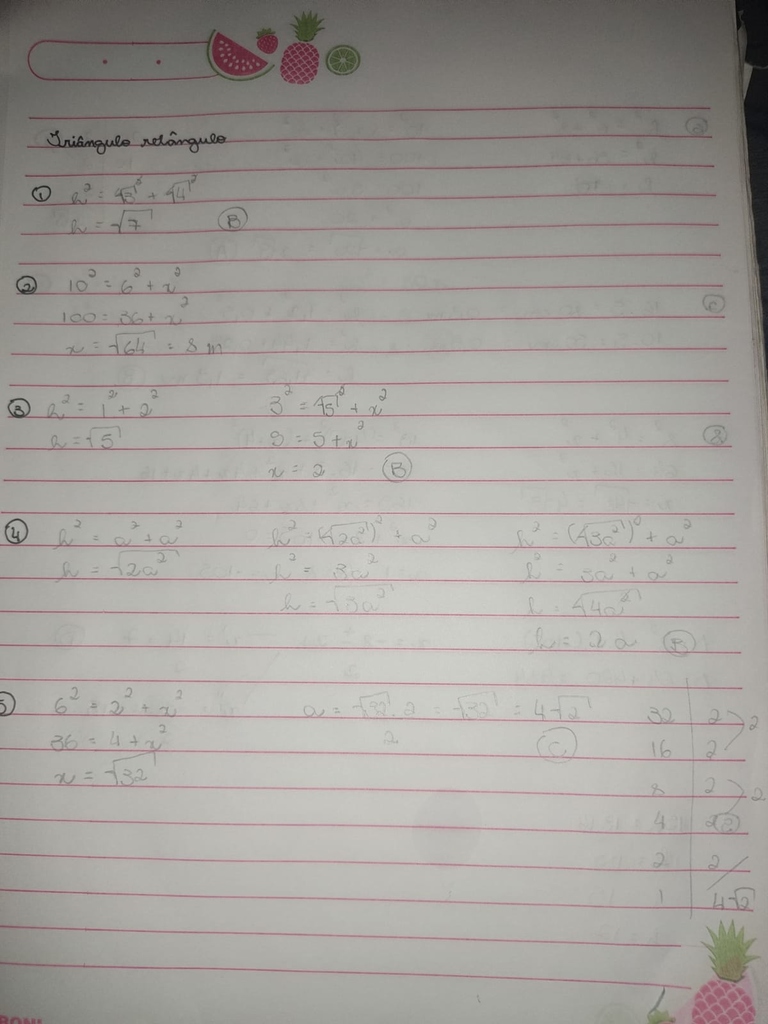 Triângulo retângulo
① h² = √3² + √4²
h = √7 Ⓑ
② 10² = 6² + x²
100 = 36 + x²
x = √64 = 8 m
③ h² = 1² + 2² 3² = √5² + x²
h = √5 9 = 5 + x²
x = 2 Ⓑ
④ h² = a² + a² h² = (√2a²)² + a² h² = (√3a²)² + a²
h = √2a² h² = 3a² h² = 3a² + a²
h = √3a² h = √4a²
h = 2a
5 6² = 2² + x² a = √32 . 2 = √32 = 4√2 32 2 2
36 = 4 + x² 2 Ⓒ 16 2
x = √32 8 2 2
4 2
2 2
1 4√2